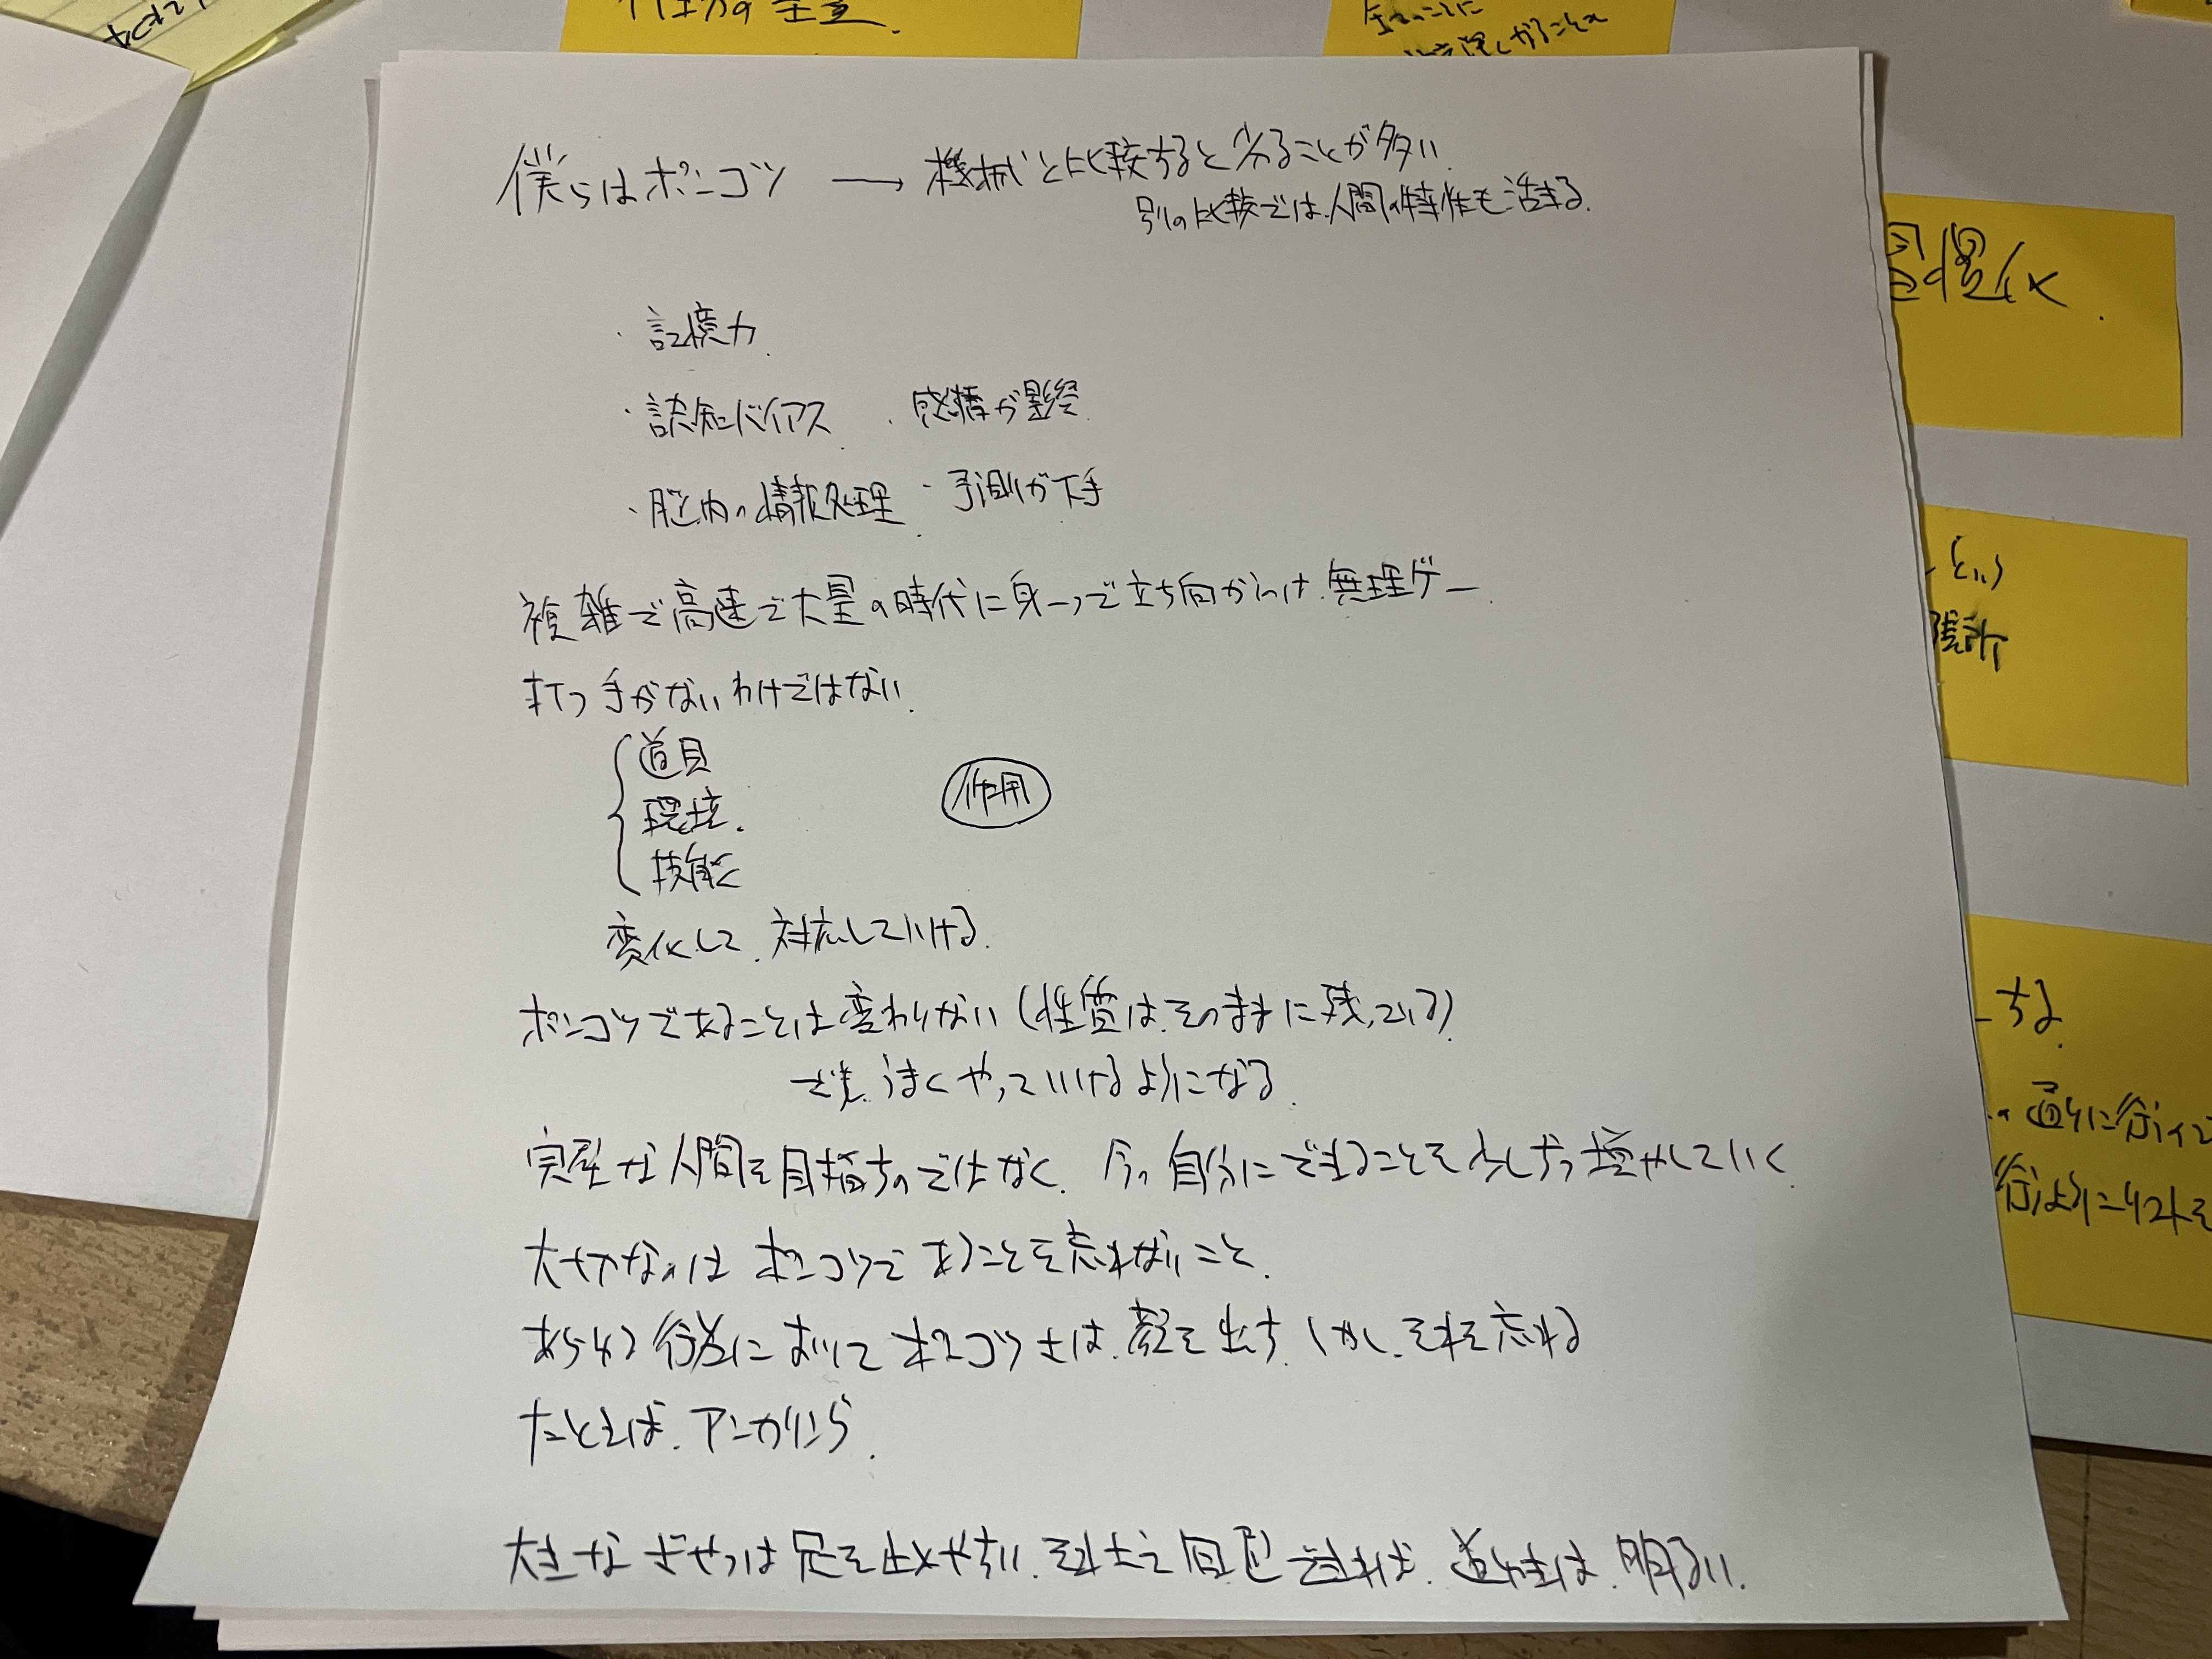 僕らはポンコツ → 機械と比較すると劣ることが多い
別の比較では、人間の特性も活きる.
・記憶力.
・認知バイアス ・感情が影響
・脳内の情報処理. ・予測が下手
複雑で高速で大量の時代に身一つで立ち向かうのは、無理ゲー.
打つ手がないわけではない.
道具
環境.
技能
作用
変化して、対応していける.
ポンコツであることは変わらない(性質は、そのままに残っている)
でも、うまくやっていけるようになる.
完璧な人間を目指すのではなく、今の自分にできることを少しずつ増やしていく.
大切なのは ポンコツであることを忘れないこと.
あらゆる行為において ポンコツさは、顔を出す. しかし、それを忘れる
たとえば、アンカリング.
大きな は足を止めやすい. それさえ回避できれば、道行きは、明るい.
全てのことに
習慣化.
する.